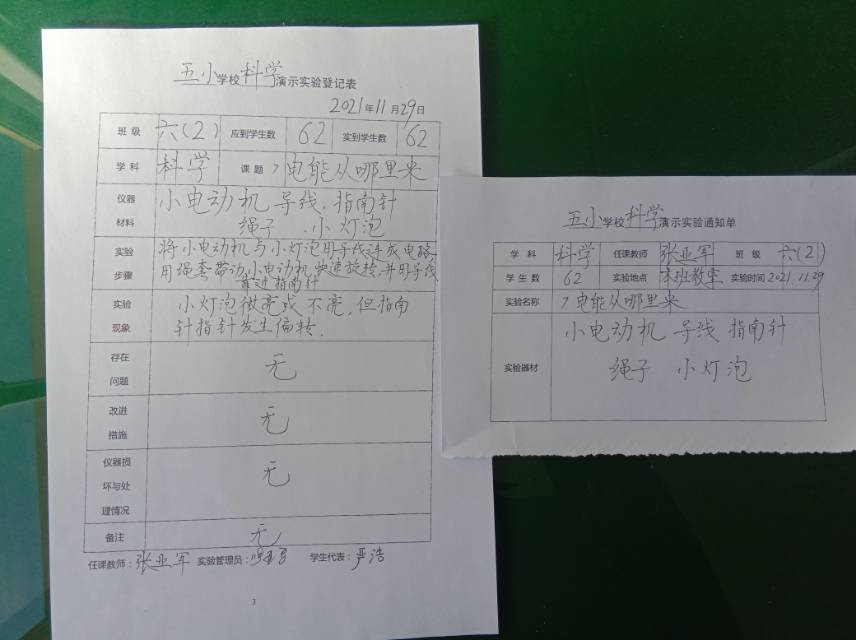 五小学校科学演示实验登记表
2021年11月29日
班级 六(2) 应到学生数 62 实到学生数 62
学科 科学 课题 7电能从哪里来
仪器材料 小电动机 导线、指南针
绳子 、小灯泡
实验步骤 将小电动机与小灯泡用导线连成电路,
用绳套带动小电动机快速旋转,并用导线
靠近指南针
实验现象 小灯泡微亮或不亮,但指南
针指针发生偏转.
存在问题 无
改进措施 无
仪器损坏与处理情况 无
备注 无
任课教师:张亚军 实验管理员: 学生代表:严浩
3
五小学校科学演示实验通知单
学科 科学 任课教师 张亚军 班级 六(2)
学生数 62 实验地点 本班教室 实验时间 2021.11.29
实验名称 7电能从哪里来
实验器材 小电动机 导线 指南针
绳子 小灯泡